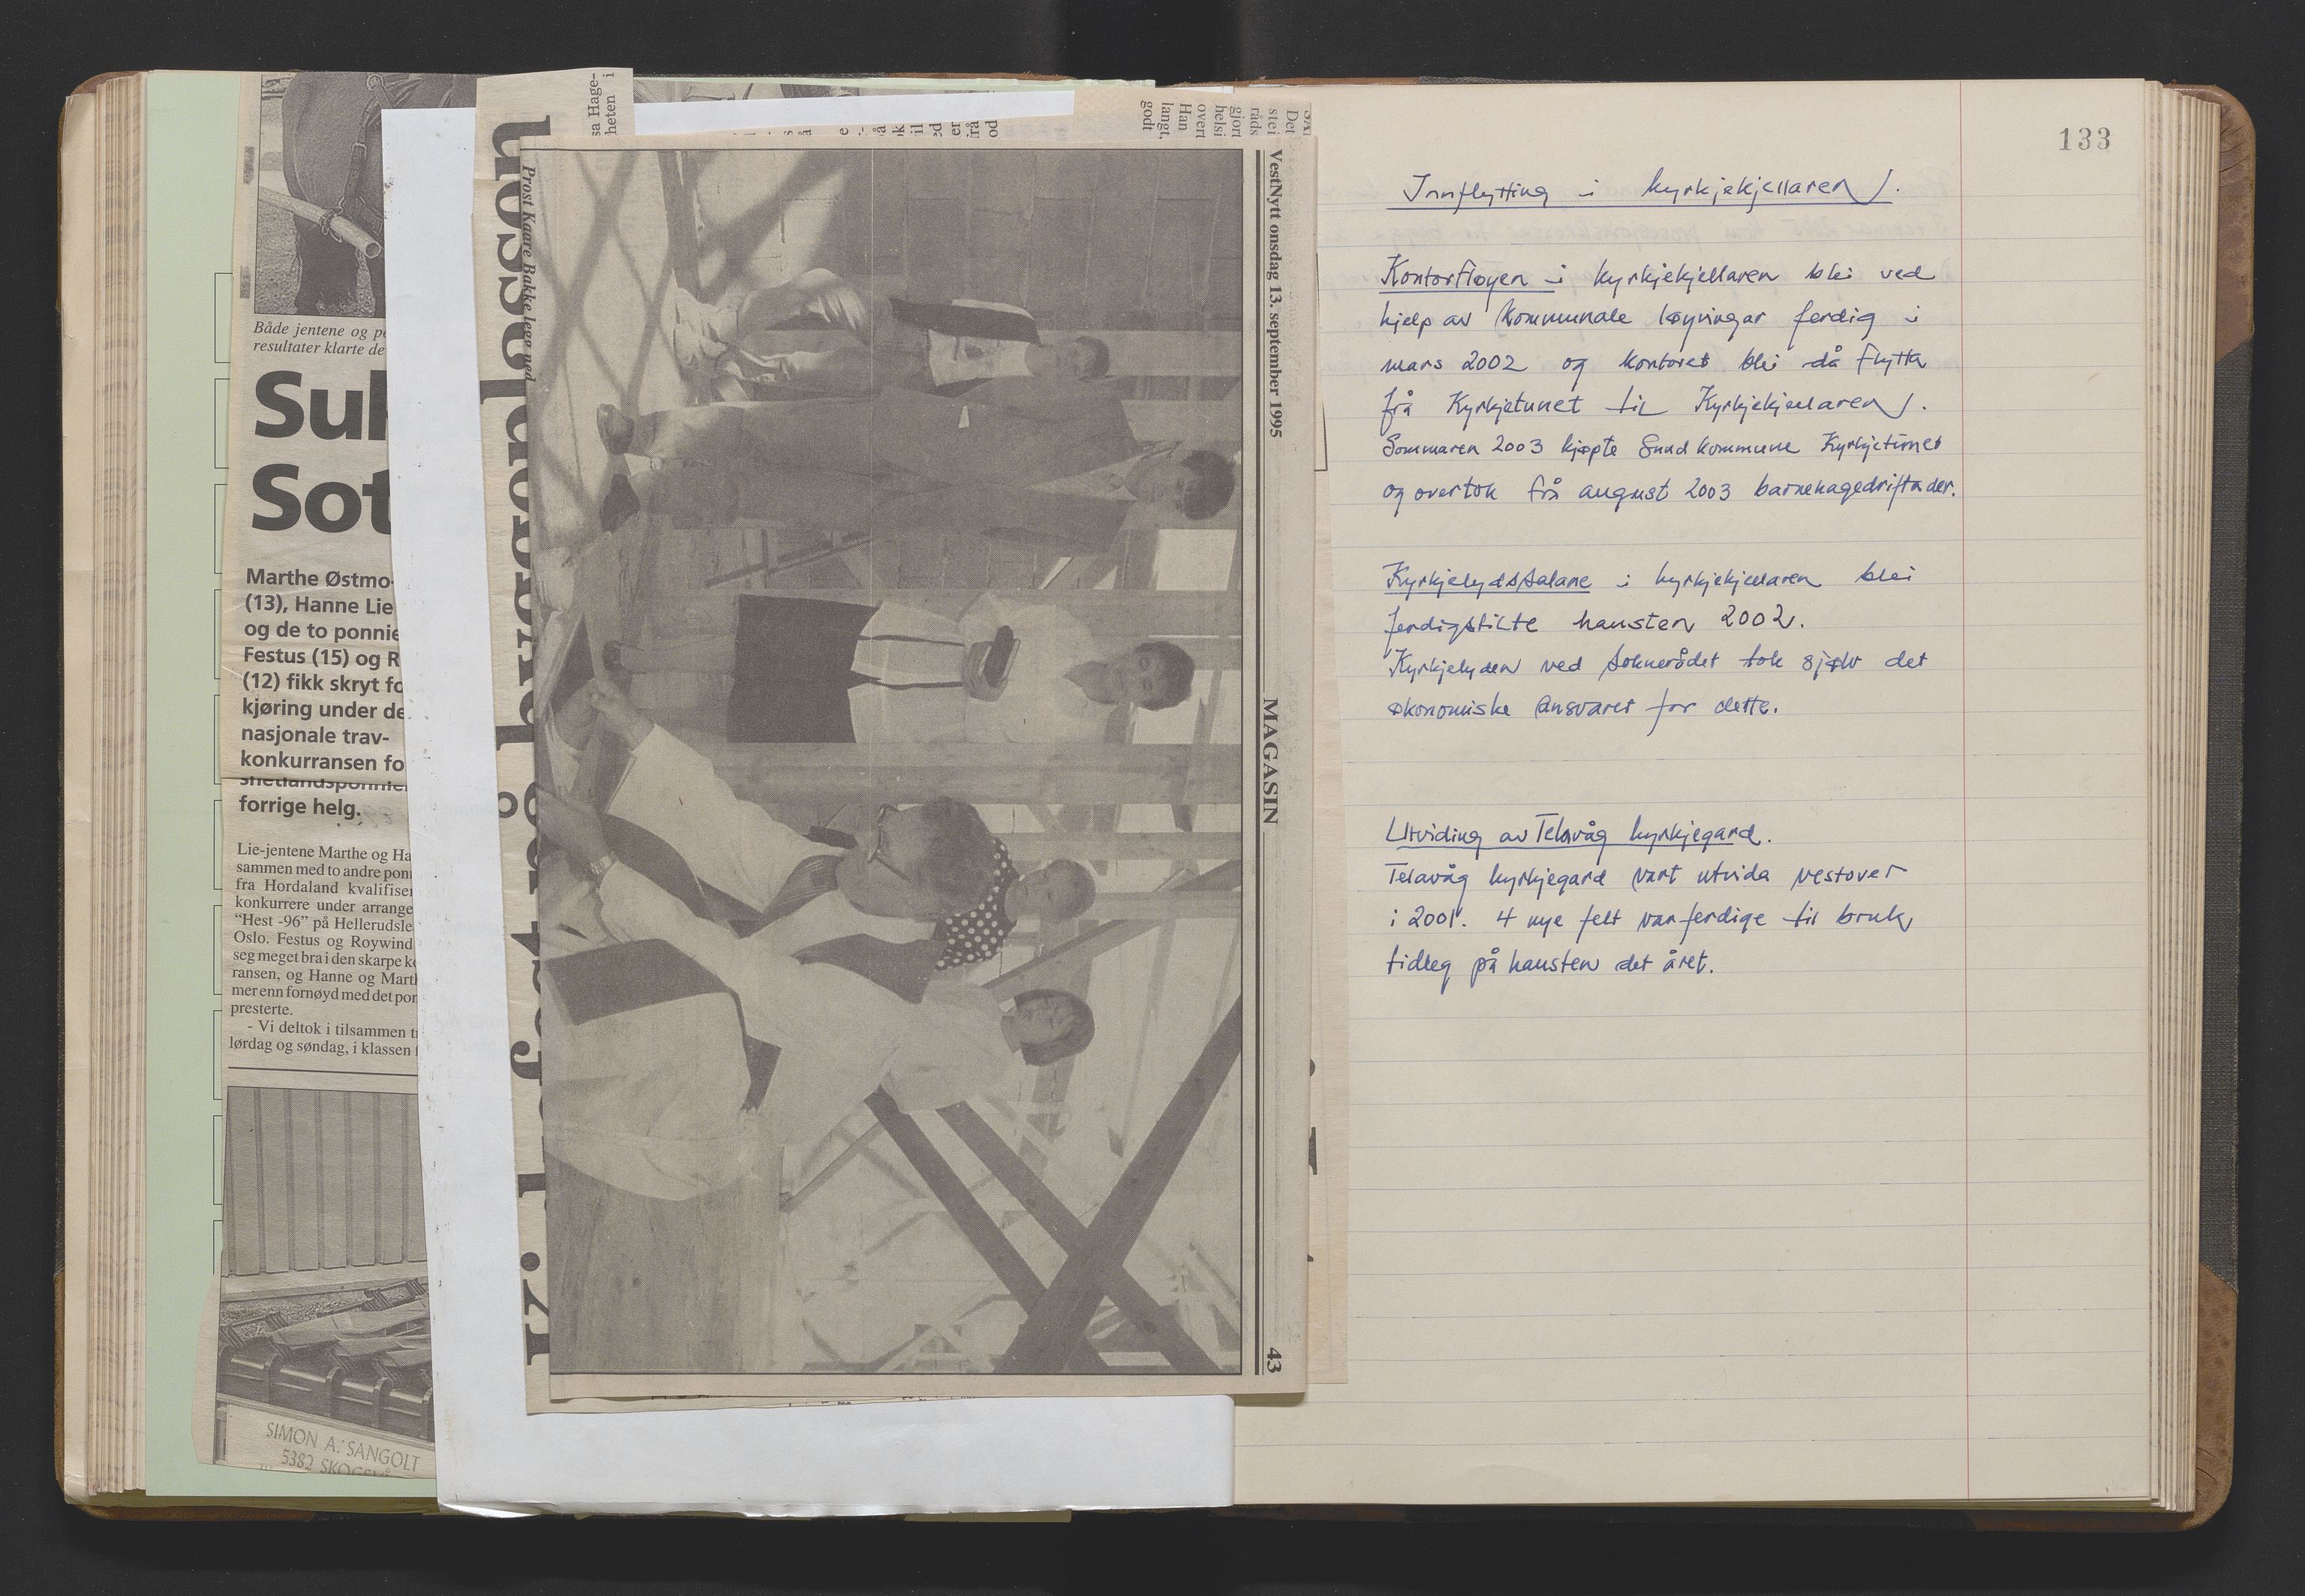 sa Hage-
heten i
Både jentene og po
resultater klarte de
Suk
Sot
Marthe Østmo-
(13), Hanne Lie
og de to ponnie
Festus (15) og R
(12) fikk skryt fo
kjøring under de
nasjonale trav-
konkurransen fo
shetlandsponnie
forrige helg.
Lie-jentene Marthe og Ha
sammen med to andre ponn
fra Hordaland kvalifiser
konkurrere under arrange
“Hest -96” på Hellerudsle
Oslo. Festus og Roywind
seg meget bra i den skarpe ko
ransen, og Hanne og Marth
mer enn fornøyd med det pon
presterte.
- Vi deltok i tilsammen t
lørdag og søndag, i klassen f
SIMON A. SANGOLT
5382 SKOGSVÅ
Prost Kaare Bakke legg ned
VestNytt onsdag 13. september 1995
MAGASIN
43
Det
stei
råds
gjort
helsi
overt
Han
langt,
godt
133
Innflytting i kyrkjekjellaren.
Kontorfløyen i kyrkjekjellaren blei ved
hjelp av kommunale løyvingar ferdig i
mars 2002 og kontoret blei då flytta
frå Kyrkjetunet til Kyrkjekjellaren.
Sommaren 2003 kjøpte Sund kommune Kyrkjetunet
og overtok frå august 2003 barnehagedrifta der.
Kyrkjelydssalane i kyrkjekjellaren blei
ferdigstilte hausten 2002.
Kyrkjelyden ved Sokneradet tok sjølv det
økonomiske ansvaret for dette.
Utviding av Telavåg kyrkjegard.
Telavåg kyrkjegard vart utvida vestover
i 2001. 4 nye felt var ferdige til bruk
tidleg på hausten det året.